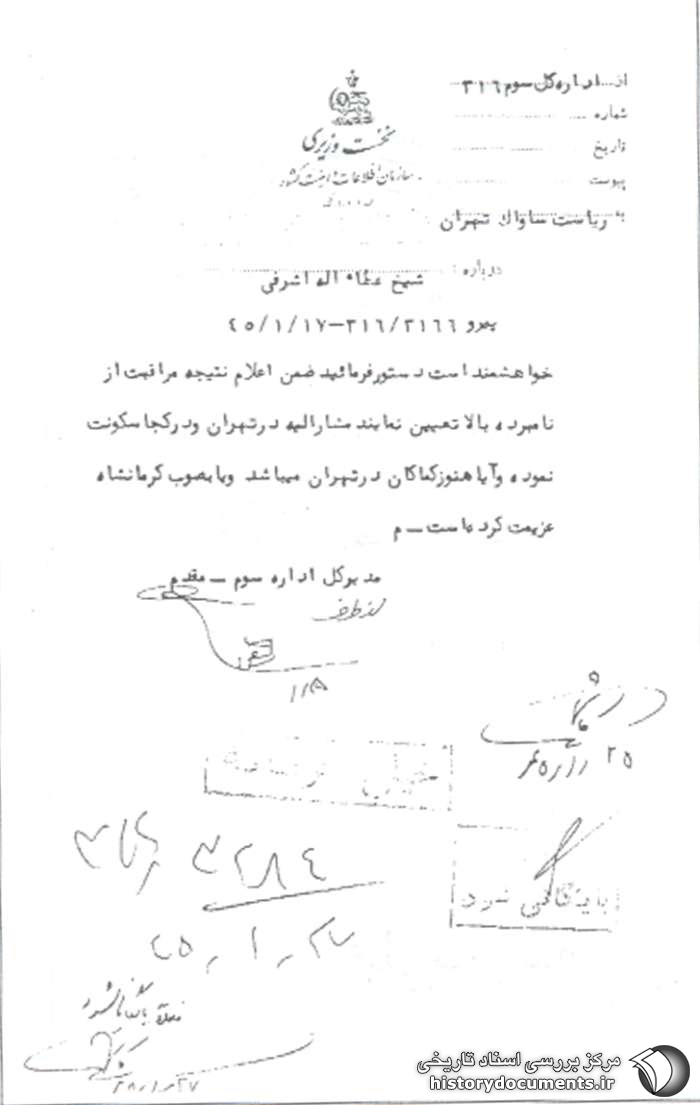 از ... اداره کل سوم ۳۱۶
شماره
تاریخ
پیوست
نخست وزیری
سازمان اطلاعات و امنیت کشور
س.ا.و.ا.ک
به ریاست ساواک تهران
درباره : شیخ عطاء اله اشرفی
پیرو ۳۱۶/۳۱۶۶-۴۵/۱/۱۷
خواهشمند است دستور فرمائید ضمن اعلام نتیجه مراقبت از
نامبرده بالا تعیین نمایند مشارالیه در تهران و در کجا سکونت
نموده و آیا هنوز کماکان در تهران میباشد و یا بصوب کرمانشاه
عزیمت کرده است ـ م
مدیر کل اداره سوم ـ مقدم
از طرف
۲۵
خیلی محرمانه
۳۱۶ ر ۳۲۸۴
۴۵ ر ۱ ر ۲۷
بایگانی شود
مرکز بررسی اسناد تاریخی
historydocuments.ir